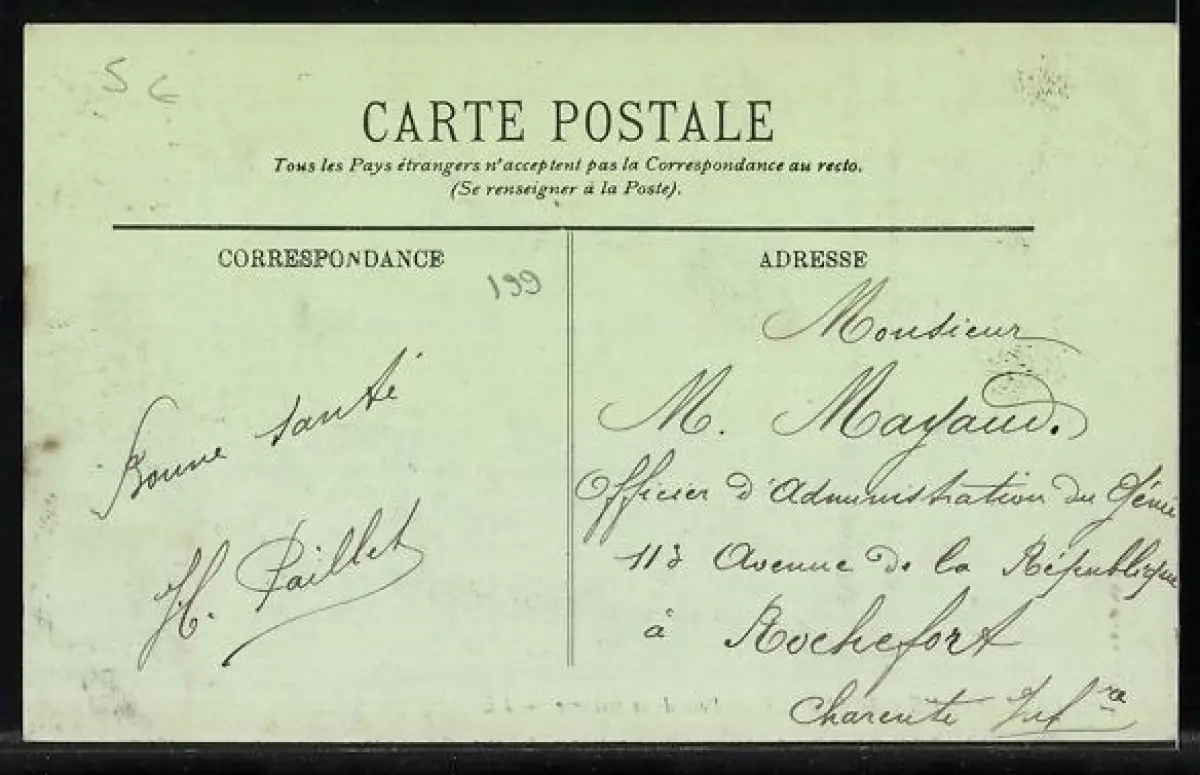 5 €
CARTE POSTALE
Tous les Pays étrangers n'acceptent pas la Correspondance au recto.
(Se renseigner à la Poste).
CORRESPONDANCE
199
Bonne santé
H. Paillet
ADRESSE
Monsieur
M. Mayaud.
Officier d'Administration du Génie
113 Avenue de la République
à Rochefort
Charente Infre